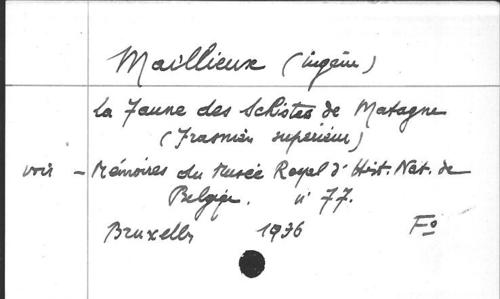 Maillieux (Eugène)
La Faune des Schistes de Matagne
(Frasnien supérieur)
voir - Mémoires du Musée Royal d'Hist. Nat. de
Belgique. n° 77.
Bruxelles 1936 Fo